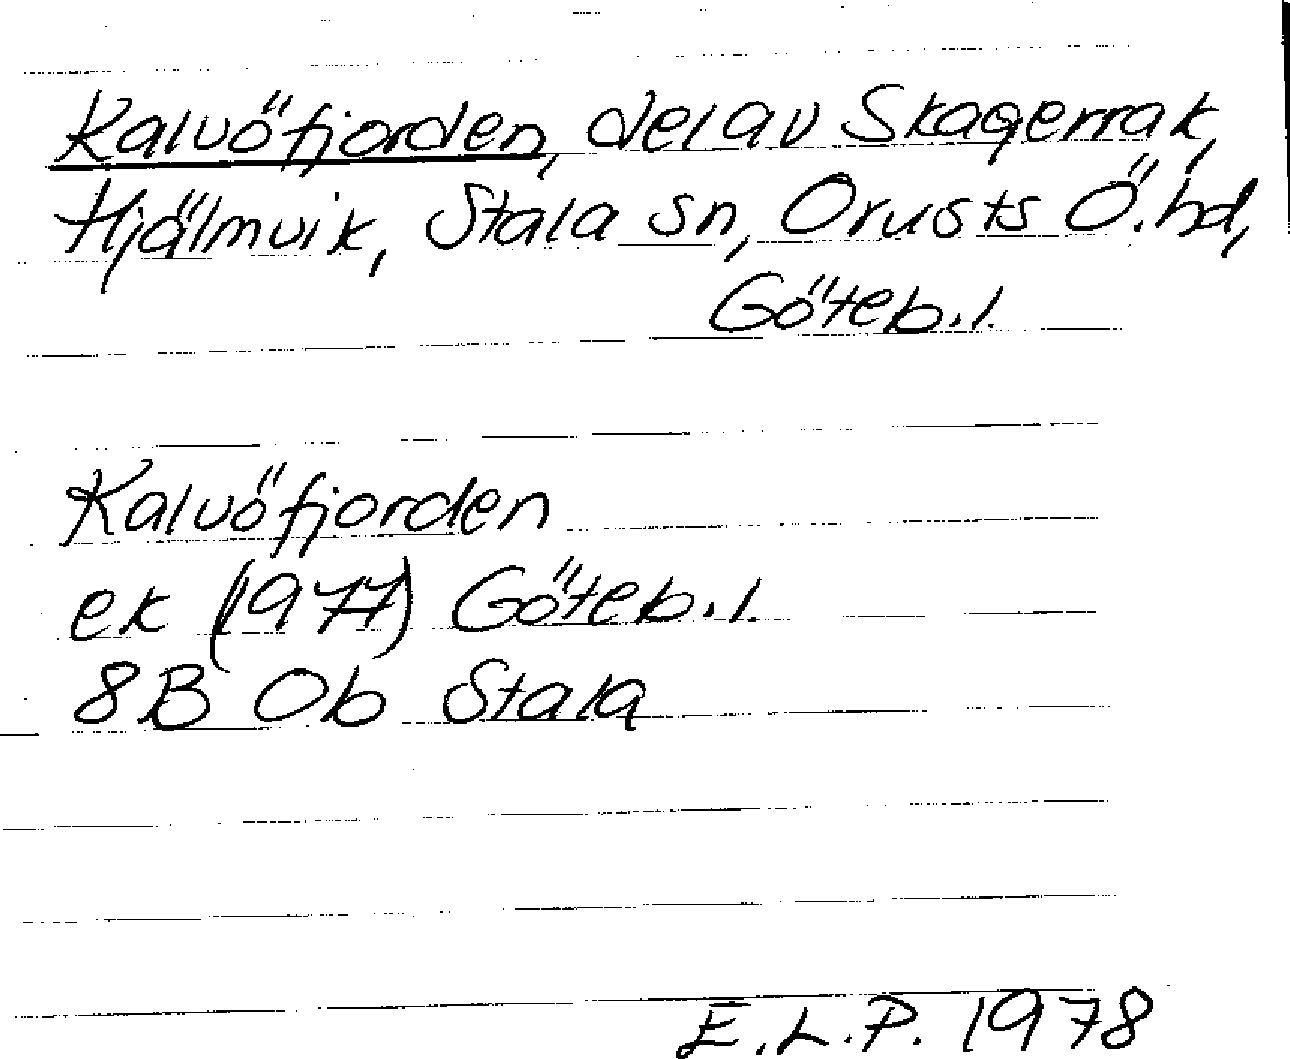 Kalvöfjorden, del av Skagerrak,
Hjälmvik, Stala sn, Orusts Ö. hd,
Göteb. l.
Kalvöfjorden
ek (1977) Göteb. l.
8B Ob Stala
E.L.P. 1978